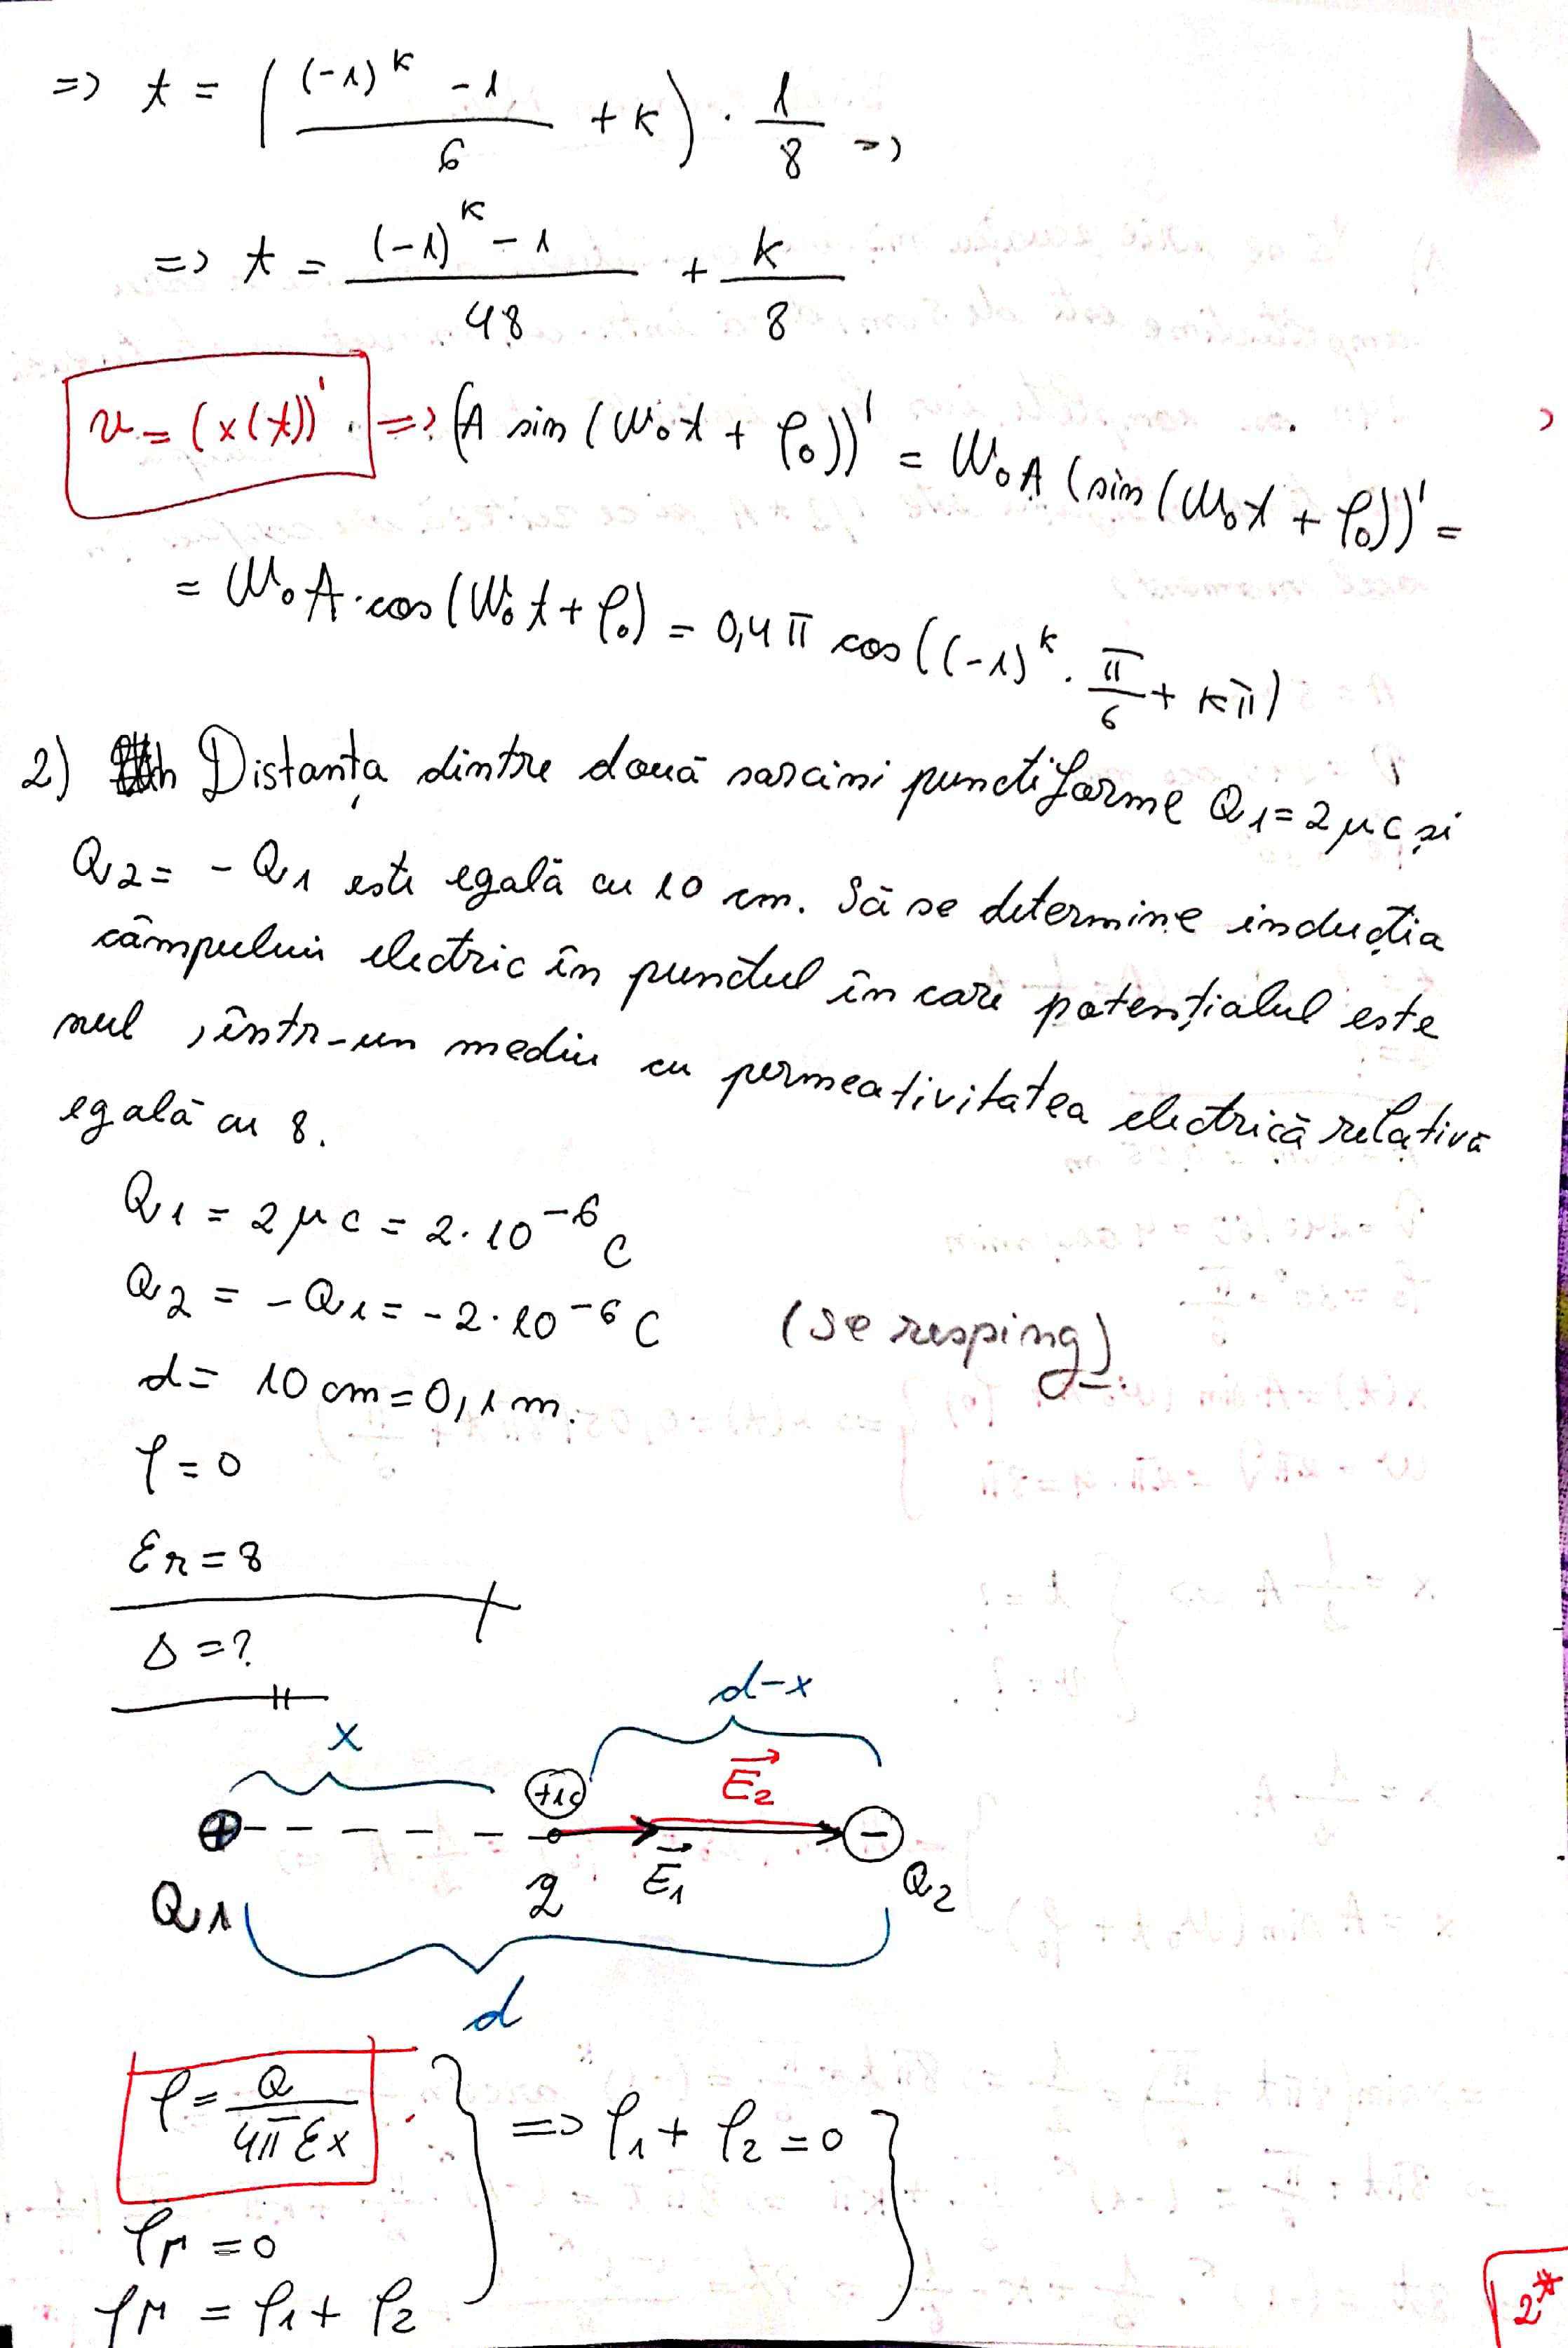 => t = ( ((-1)^k - 1)/6 + k ) · 1/8 =>
=> t = ((-1)^k - 1)/48 + k/8
v = (x(t))' => (A sin (ω₀t + φ₀))' = ω₀A (sin (ω₀t + φ₀))' =
= ω₀A·cos(ω₀t + φ₀) = 0,4π cos((-1)^k · π/6 + kπ)
2) Distanța dintre două sarcini punctiforme Q1 = 2 μc și
Q2 = - Q1 este egală cu 10 cm. Să se determine inducția
câmpului electric în punctul în care potențialul este
nul, într-un mediu cu permeativitatea electrică relativă
egală cu 8.
Q1 = 2 μc = 2·10^-6 C
Q2 = - Q1 = - 2·10^-6 C (se resping).
d = 10 cm = 0,1 m.
φ = 0
εr = 8
D = ?
d-x
x
+1c
E2
+
-
Q1
q
E1
Q2
d
φ = Q/(4πεx)
=> φ1 + φ2 = 0
φM = 0
φM = φ1 + φ2
2*